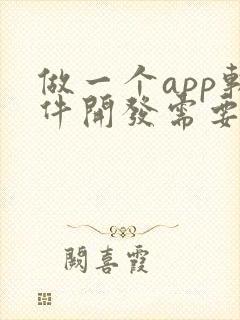 做一个app軟
件開發需要
闕喜霞